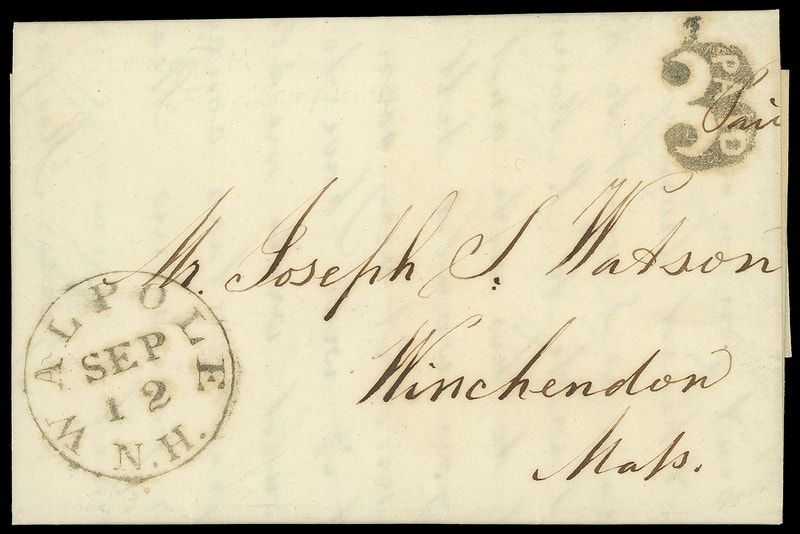 3 PAID
Pai
Mr. Joseph S. Watson
Winchendon
Mass.
WALPOLE
SEP
12
N.H.